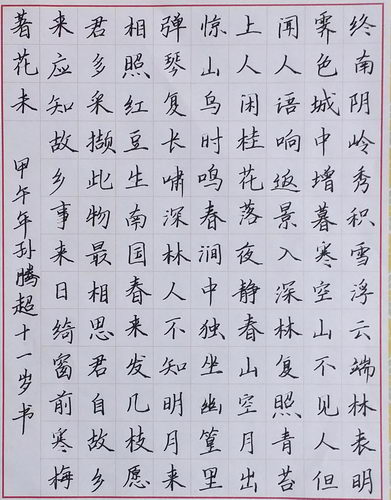 终南阴岭秀积雪浮云端林表明
霁色城中增暮寒空山不见人但
闻人语响返景入深林复照青苔
上人闲桂花落夜静春山空月出
惊山鸟时鸣春涧中独坐幽篁里
弹琴复长啸深林人不知明月来
相照红豆生南国春来发几枝愿
君多采撷此物最相思君自故乡
来应知故乡事来日绮窗前寒梅
著花未
甲午年孙腾超十一岁书